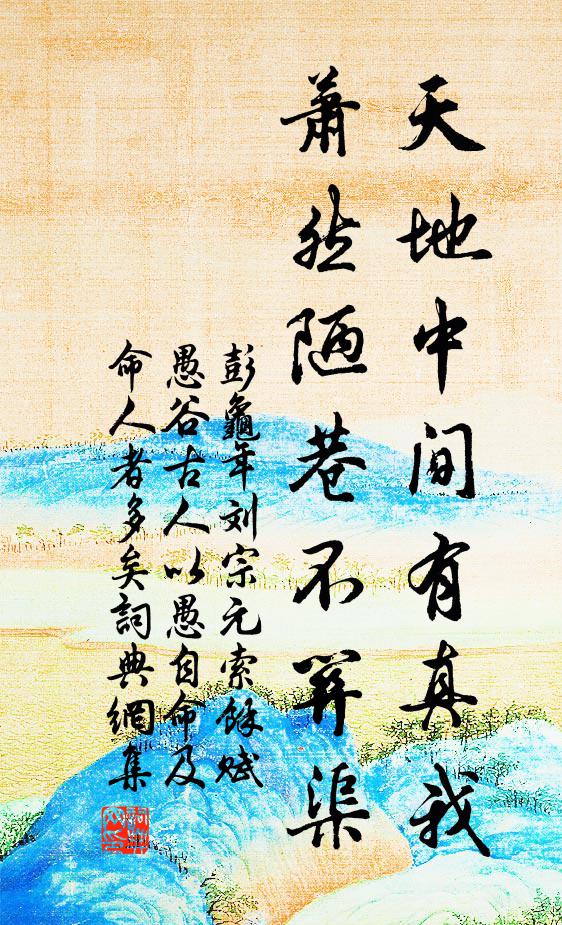 天地中间有真我
萧然陋巷不算渠
彭龜年刘宗元索餘赋
愚谷古人以愚自命及
命人者多矣詞典網集